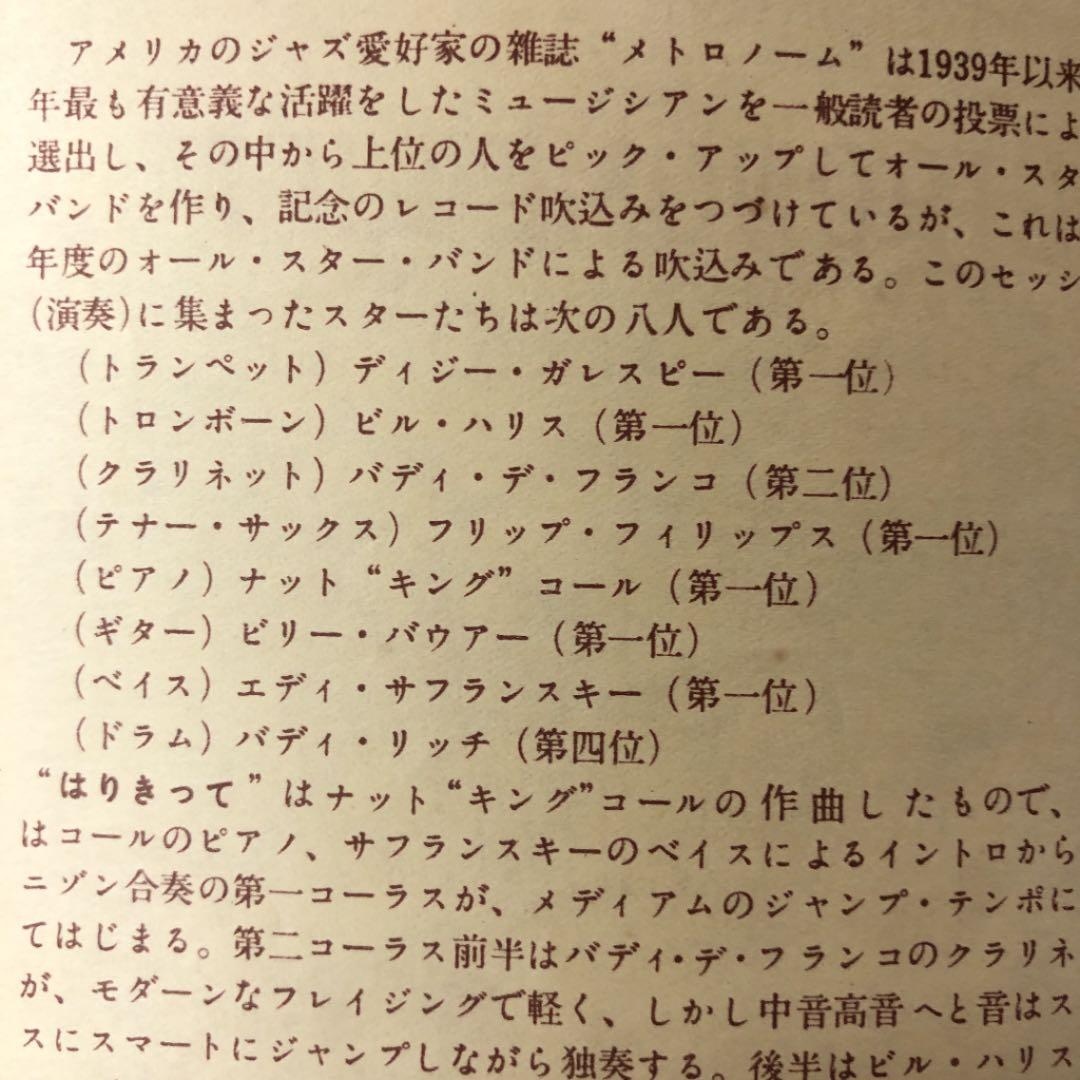 アメリカのジャズ愛好家の雑誌“メトロノーム”は1939年以来
年最も有意義な活躍をしたミュージシアンを一般読者の投票によ
選出し、その中から上位の人をピック・アップしてオール・スタ
バンドを作り、記念のレコード吹込みをつづけているが、これは
年度のオール・スター・バンドによる吹込みである。このセッシ
(演奏)に集まったスターたちは次の八人である。
(トランペット) ディジー・ガレスピー (第一位)
(トロンボーン) ビル・ハリス (第一位)
(クラリネット) バディ・デ・フランコ (第二位)
(テナー・サックス) フリップ・フィリップス (第一位)
(ピアノ) ナット“キング”コール (第一位)
(ギター) ビリー・バウアー (第一位)
(ベイス) エディ・サフランスキー (第一位)
(ドラム) バディ・リッチ (第四位)
“はりきって”はナット“キング”コールの作曲したもので、
はコールのピアノ、サフランスキーのベイスによるイントロから
ニゾン合奏の第一コーラスが、メディアムのジャンプ・テンポに
てはじまる。第二コーラス前半はバディ・デ・フランコのクラリネ
が、モダーンなフレイジングで軽く、しかし中音高音へと音はス
スにスマートにジャンプしながら独奏する。後半はビル・ハリス